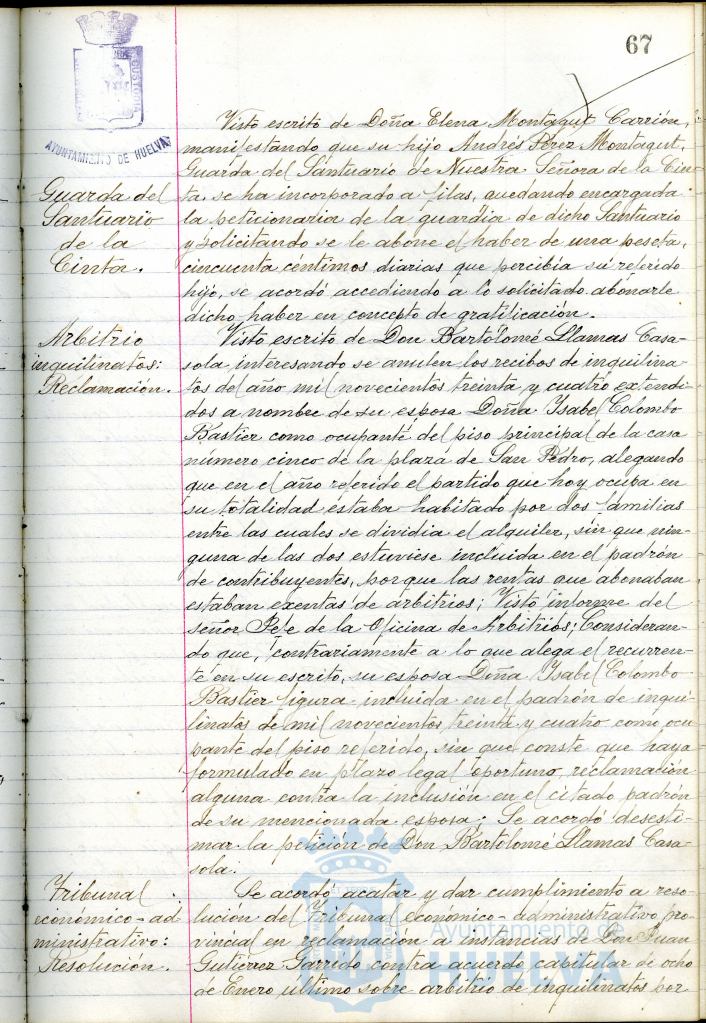 67
AYUNTAMIENTO DE HUELVA
Visto escrito de Doña Elena Montagut Carrión,
manifestando que su hijo Andrés Pérez Montagut,
Guarda del Santuario de Nuestra Señora de la Cin-
Guarda del
Santuario
de la
Cinta.
ta, se ha incorporado a filas, quedando encargada
la peticionaria de la guardia de dicho Santuario
y solicitando se le abone el haber de una peseta,
cincuenta céntimos diarias que percibía su referido
hijo, se acordó accediendo a lo solicitado abonarle
dicho haber en concepto de gratificación.
Arbitrio
inquilinatos:
Reclamación.
Visto escrito de Don Bartolomé Llamas Casa-
sola, interesando se anulen los recibos de inquilina-
tos del año mil novecientos treinta y cuatro extendi-
dos a nombre de su esposa Doña Isabel Colombo
Bastier como ocupante del piso principal de la casa
número cinco de la plaza de San Pedro, alegando
que en el año referido el partido que hoy ocupa en
su totalidad estaba habitado por dos familias
entre las cuales se dividía el alquiler, sin que nin-
guna de las dos estuviese incluida en el padrón
de contribuyentes, porque las rentas que abonaban
estaban exentas de arbitrios; Visto informe del
señor Jefe de la Oficina de Arbitrios; Consideran-
do que, contrariamente a lo que alega el recurren-
te en su escrito, su esposa Doña Isabel Colombo
Bastier figura incluida en el padrón de inqui-
linatos de mil novecientos treinta y cuatro como ocu-
pante del piso referido, sin que conste que haya
formulado en plazo legal oportuno, reclamación
alguna contra la inclusión en el citado padrón
de su mencionada esposa; Se acordó desesti-
mar la petición de Don Bartolomé Llamas Casa-
sola.
Tribunal
económico-ad
ministrativo:
Resolución.
Se acordó acatar y dar cumplimiento a reso-
lución del Tribunal económico-administrativo pro-
vincial en reclamación a instancias de Don Juan
Gutiérrez Garrido contra acuerdo capitular de ocho
de Enero último sobre arbitrio de inquilinatos por
Ayuntamiento de
HUELVA